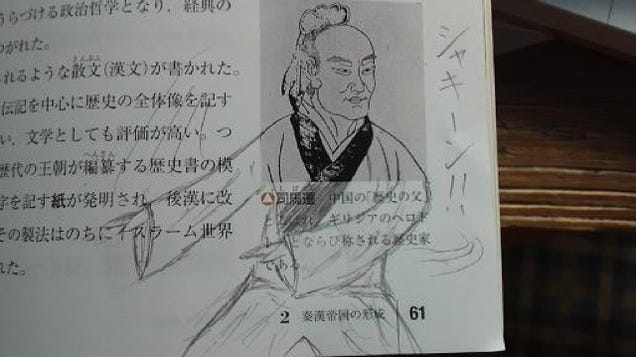 うらづける政治哲学となり，経典の
つがれた。
さんぶん
れるような散文(漢文)が書かれた。
伝記を中心に歴史の全体像を記す
い，文学としても評価が高い。つ
へんさん
歴代の王朝が編纂する歴史書の模
字を記す紙が発明され，後漢に改
その製法はのちにイスラーム世界
れた。
シャキーン!!
司馬遷 中国の「歴史の父」
ギリシアのヘロド
とならび称される歴史家
である。
2 秦漢帝国の形成 61